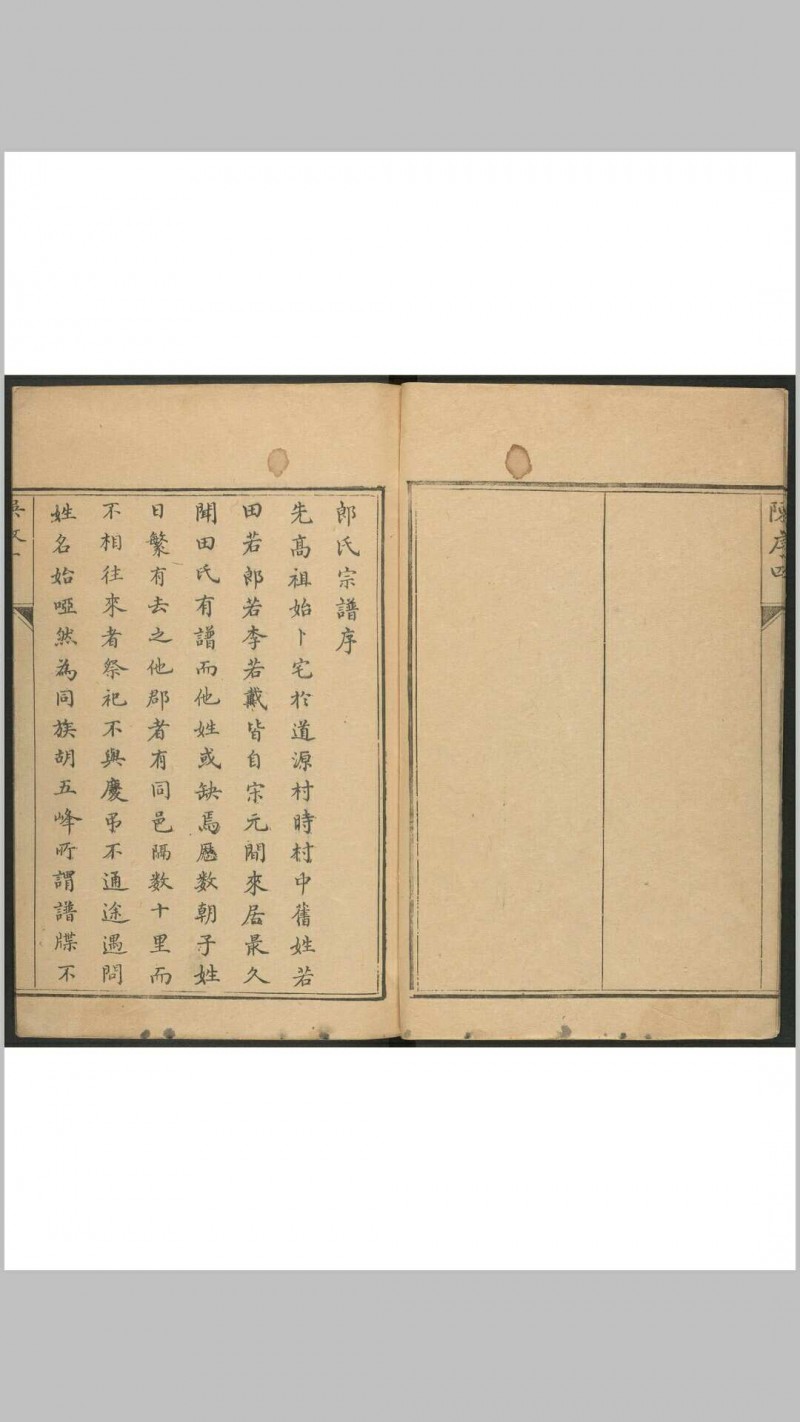 陳序四
郎氏宗譜序
先高祖始卜宅於道源村時村中舊姓若
田若郎若李若戴皆自宗元間來居最久
聞田氏有譜而他姓或缺焉歷数朝子姓
日繁有去之他郡者有同邑隔数十里而
不相往來者祭祀不與慶弔不通途遇問
姓名始啞然為同族胡五峰所謂譜牒不